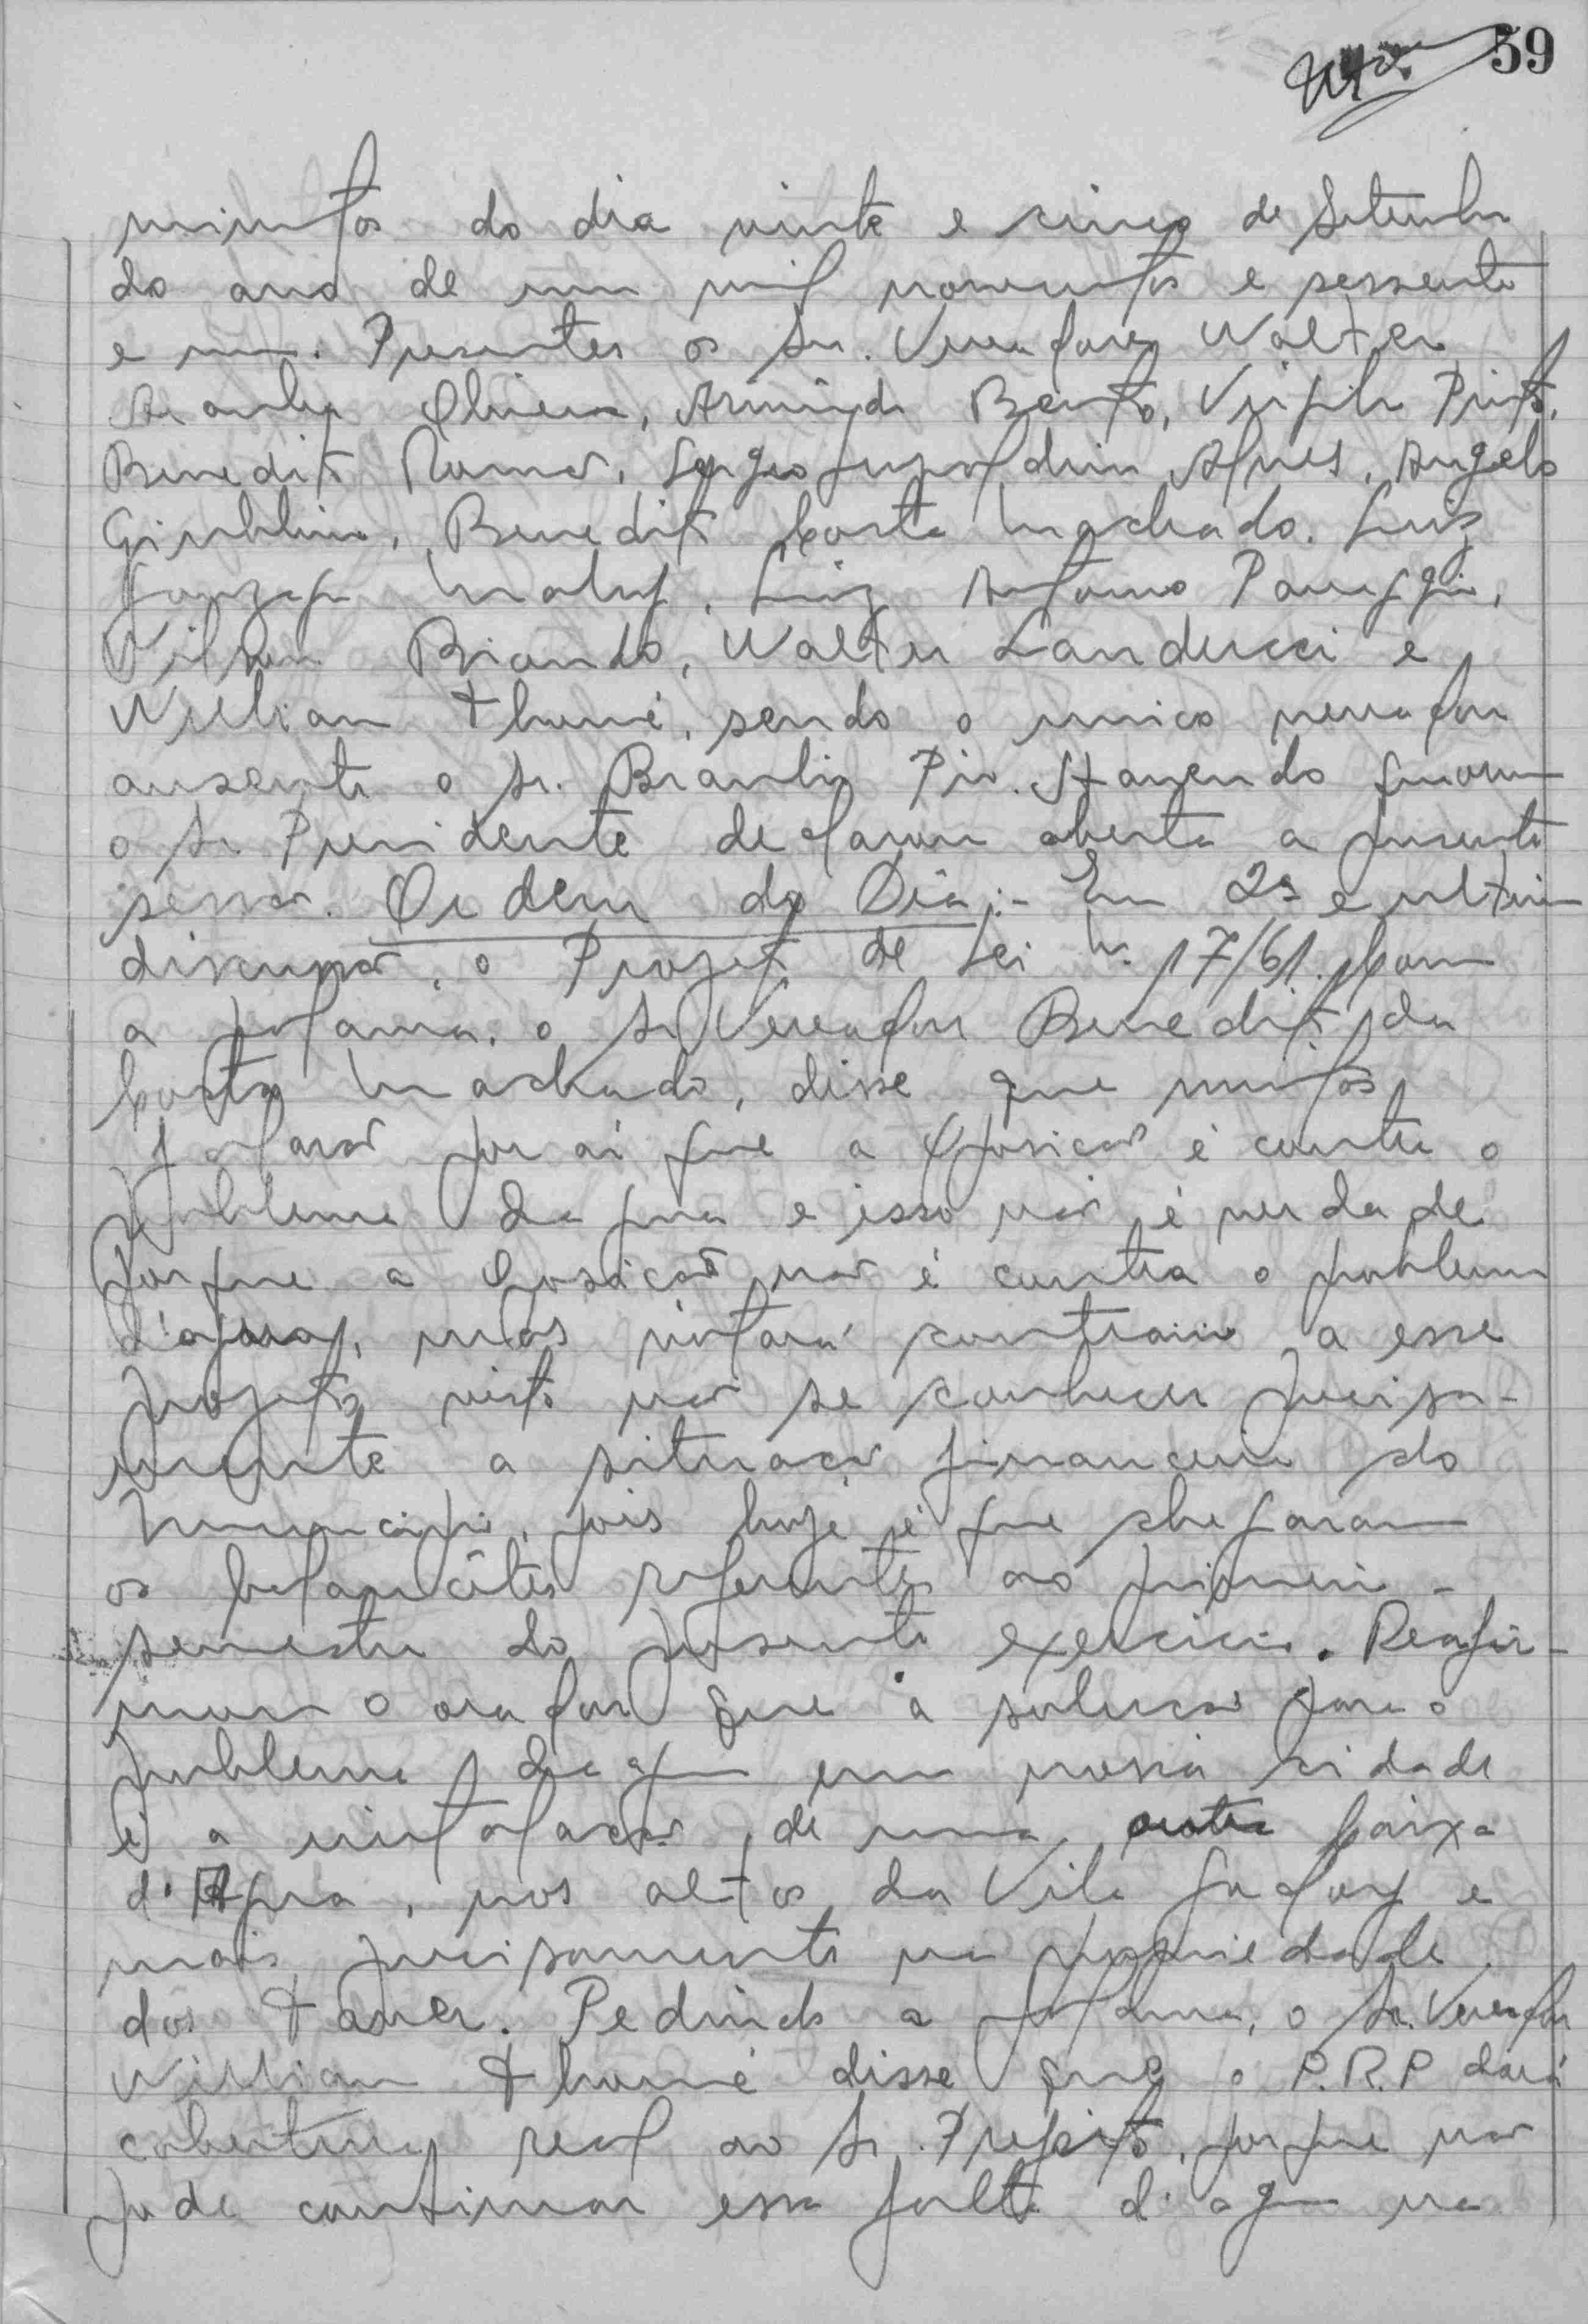 59
minutos do dia vinte e cinco de Setembro
do ano de um mil novecentos e sessenta
e um. Presentes os Srs. Vereadores Walter
Aranha Oliveira, Armindo Bento, Virgilio Pinto,
Benedito Ramos, Sergio Alves, Angelo
Benedito Costa Machado, Luiz
Gonzaga Maluf, Luiz Antonio
Wilson Briando, Walter Landucci e
Willian Thomé, sendo o unico vereador
ausente o Sr. Braulio Pio. Havendo numero
o Sr. Presidente declarou aberta a presente
sessão. Ordem do Dia:- Em 2ª e ultima
discussão, o Projeto de Lei n. 17/61. Com
a palavra, o Sr. Vereador Benedito da
Costa Machado, disse que muitos
falarão por aí que a Oposição é contra o
problema da agua e isso não é verdade
porque a Oposição não é contra o problema
d'agua, mas votará contrario a esse
projeto, visto não se conhecer precisa-
mente a situação financeira do
Municipio, pois hoje é que chegaram
os balancêtes referentes ao primeiro
semestre do presente exercicio. Reafir-
mou o orador que a solução para o
problema da agua em nossa cidade
é a instalação de uma outra Caixa
d'Agua, nos altos da Vila Godoy e
mais precisamente na propriedade
dos Taner. Pedindo a palavra, o Sr. Vereador
Willian Thomé disse que o P.R.P dará
cobertura real ao Sr. Prefeito, porque não
pode continuar essa falta d'agua na